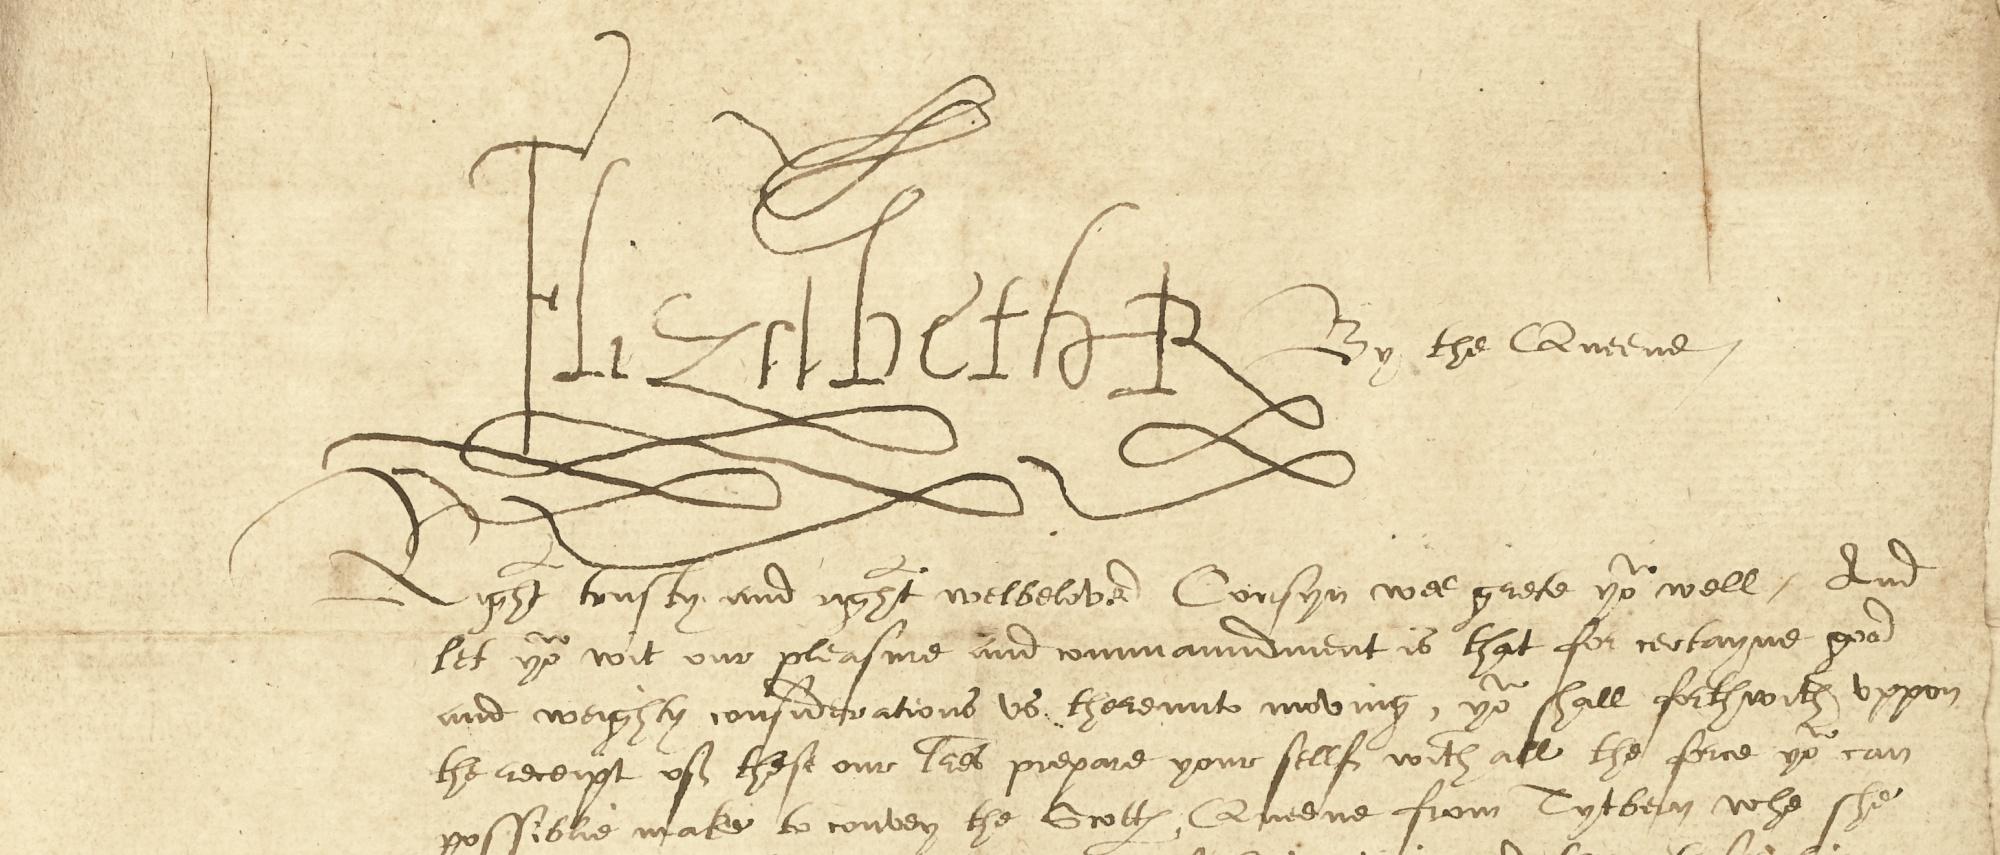 Elizabeth R
By the Queene
Right trusty and right welbeloved Cousyn wee grete you well / And
let you wit our pleasure and commaundment is that for certayne good
and weighty considerations us thereunto moving, you shall forthwith uppon
the receipt of these our lres prepare your sellf with all the force you can
possiblie make to convey the Scottz Queene from Tytbery whe she